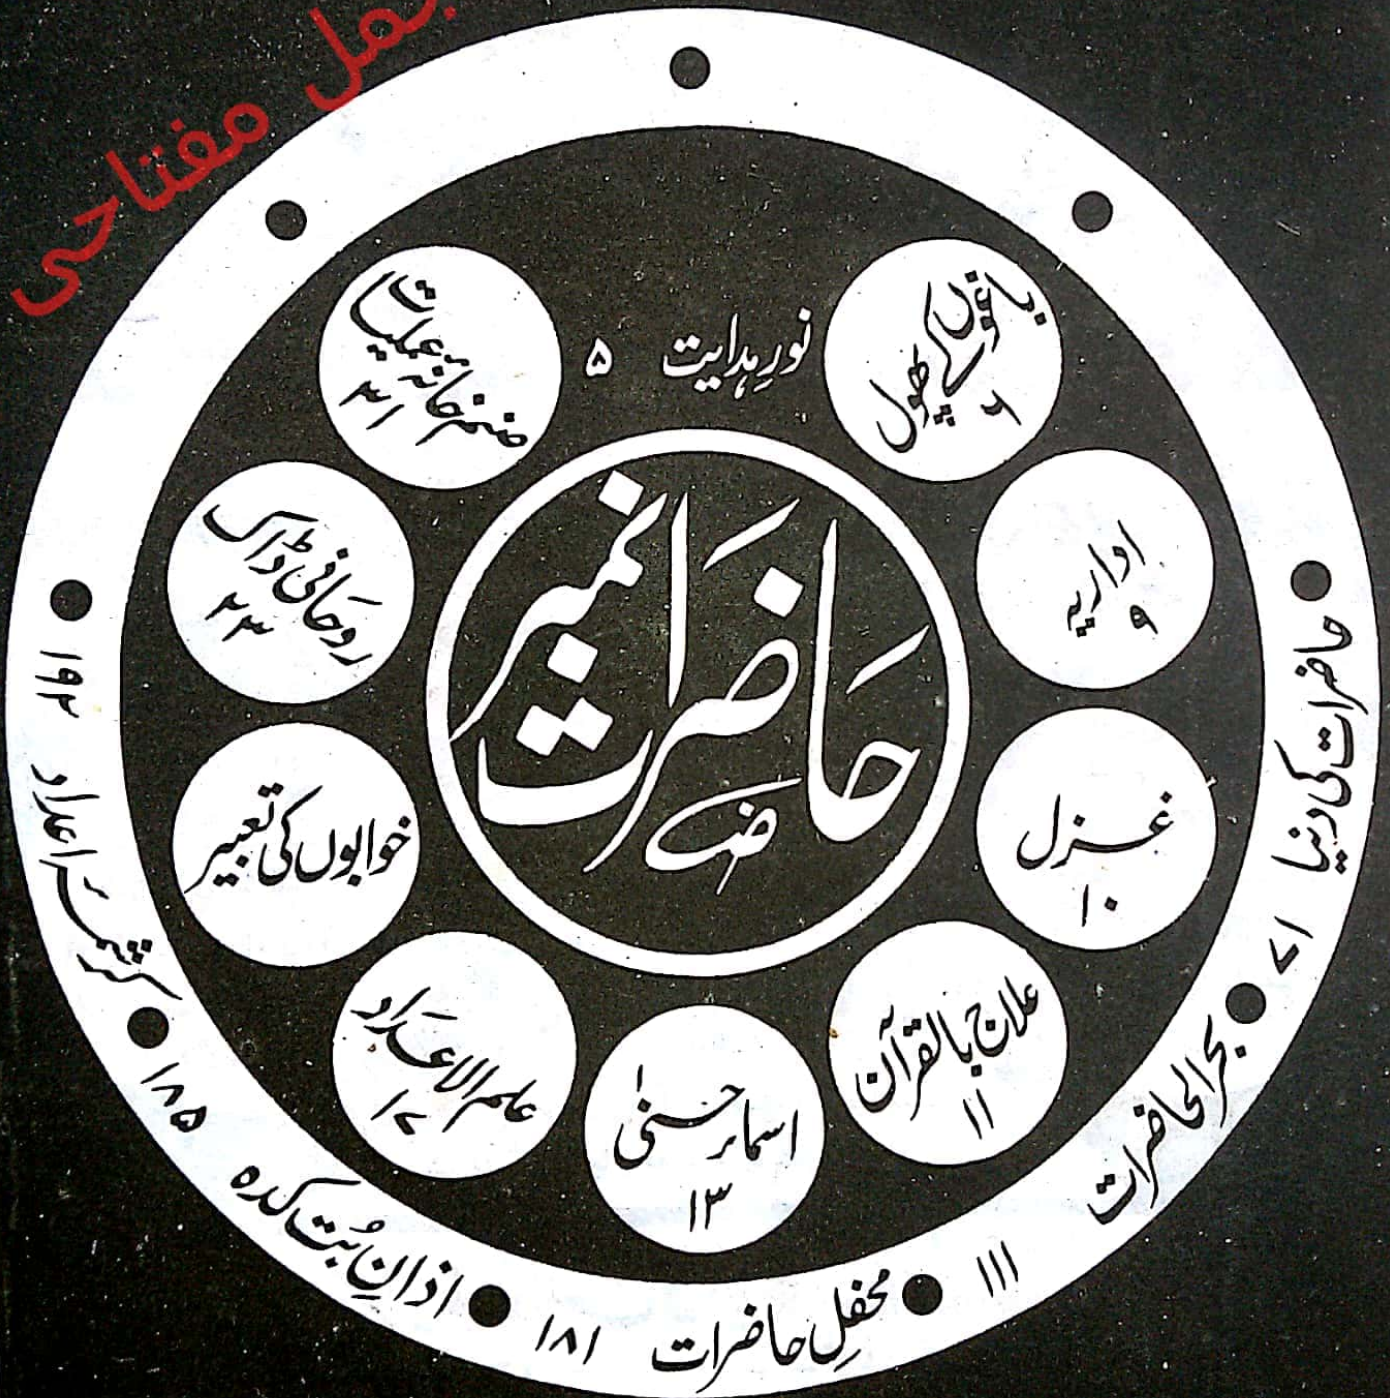 مفتاحی
نورِ ہدایت ۵
باغوں کے پھول
۶
اداریہ
۹
غزل
۱۰
علاج بالقرآن
۱۱
اسمائر حسنیٰ
۱۳
علم الاعداد
۱۷
خوابوں کی تعبیر
روحانی ڈاک
۲۳
صنم خانہ عملیات
۳۱
حاضرات نمبر
حاضرات کی دنیا ۷۱
بحر الحاضرات ۱۱۱
محفلِ حاضرات ۱۸۱
اذانِ بُت کدہ ۱۸۵
کرشمہ اعداد ۱۹۲